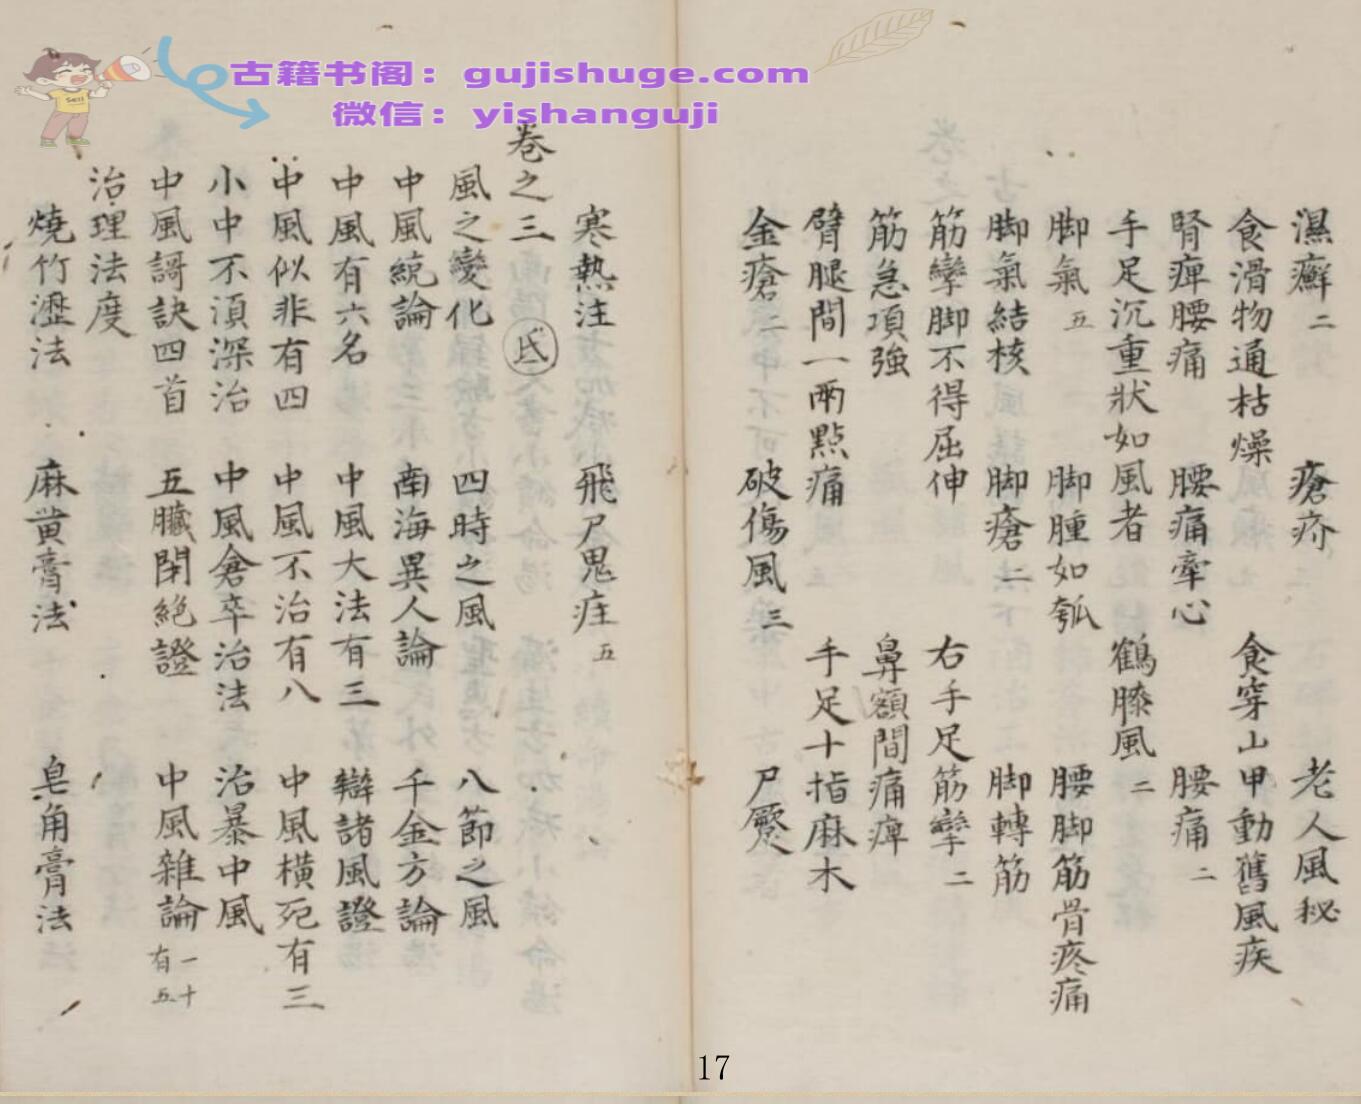 古籍书阁：gujishuge.com
微信：yishanguji
濕癬二 瘡疥 老人風秘
食滑物通枯燥 食穿山甲動舊風疾
腎痺腰痛 腰痛牽心 腰痛二
手足沉重狀如風者 鶴膝風二
脚氣五 脚腫如瓠 腰脚筋骨疼痛
脚氣結核 脚瘡二 脚轉筋
筋攣脚不得屈伸 右手足筋攣二
筋急項強 鼻額間痛痺
臂腿間一兩點痛 手足十指麻木
金瘡二 破傷風三 尸厥
寒熱注 飛尸鬼疰五
卷之三 氐
風之變化 四時之風 八節之風
中風統論 南海異人論 千金方論
中風有六名 中風大法有三 辯諸風證
中風似非有四 中風不治有八 中風橫死有三
小中不湏深治 中風倉卒治法 治暴中風
中風謌訣四首 五臟閉絕證 中風雜論有一十五
治理法度
燒竹瀝法 麻黄膏法 皂角膏法
17